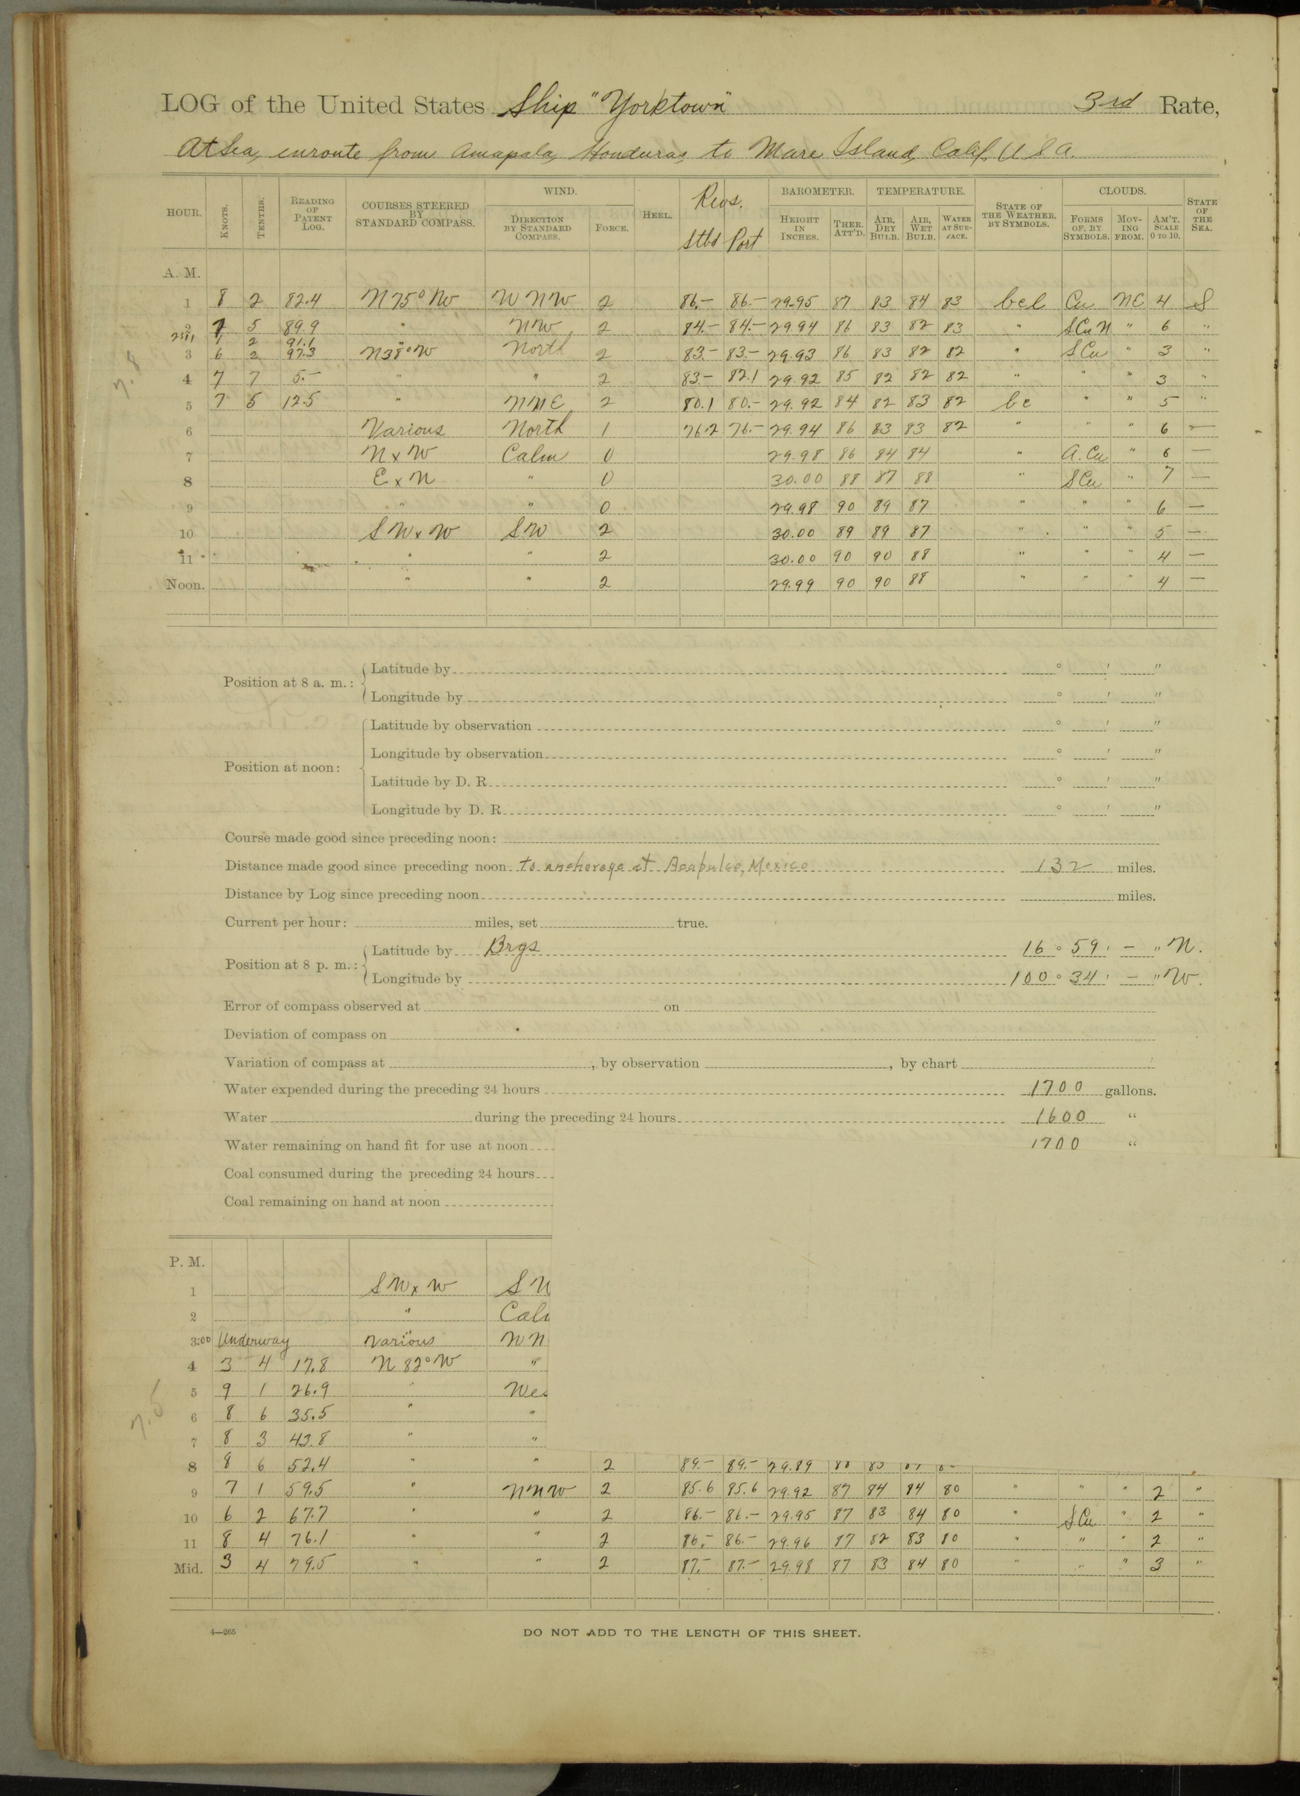 LOG of the United States Ship "Yorktown" 3rd Rate,
At Sea, enroute from Amapala, Honduras, to Mare Island, Calif. U S A.
HOUR. KNOTS. TENTHS. READING OF PATENT LOG. COURSES STEERED BY STANDARD COMPASS. WIND. DIRECTION BY STANDARD COMPASS. FORCE. HEEL. Revs. Stbd Port BAROMETER. HEIGHT IN INCHES. THER. ATT'D. TEMPERATURE. AIR, DRY BULB. AIR, WET BULB. WATER AT SURFACE. STATE OF THE WEATHER, BY SYMBOLS. CLOUDS. FORMS OF, BY SYMBOLS. MOVING FROM. AM'T. SCALE 0 TO 10. STATE OF THE SEA.
A. M.
1 8 2 82.4 N 75° W W N W 2 86.- 86.- 29.95 87 83 84 83 bcl Cu NE 4 S
2 7 5 89.9 " NW 2 84.- 84.- 29.94 86 83 82 83 " SCu N " 6 "
1 2 91.1
3 6 2 97.3 N 38° W North 2 83.- 83.- 29.93 86 83 82 82 " SCu " 3 "
4 7 7 5.- " " 2 83.- 82.1 29.92 85 82 82 82 " " " 3 "
5 7 5 12.5 " NNE 2 80.1 80.- 29.92 84 82 83 82 bc " " 5 "
6 Various North 1 76.2 76.- 29.94 86 83 83 82 " " " 6 —
7 N x W Calm 0 29.98 86 84 84 " A.Cu " 6 —
8 E x N " 0 30.00 88 87 88 " SCu " 7 —
9 " " 0 29.98 90 89 87 " " " 6 —
10 S W x W S W 2 30.00 89 89 87 " " " 5 —
11 " " 2 30.00 90 90 88 " " " 4 —
Noon. " " 2 29.99 90 90 88 " " " 4 —
Position at 8 a. m.: Latitude by ° ' "
Longitude by ° ' "
Position at noon: Latitude by observation ° ' "
Longitude by observation ° ' "
Latitude by D. R. ° ' "
Longitude by D. R. ° ' "
Course made good since preceding noon:
Distance made good since preceding noon to anchorage at Acapulco, Mexico 132 miles.
Distance by Log since preceding noon miles.
Current per hour: miles, set true.
Position at 8 p. m.: Latitude by Brgs 16 ° 59 ' — " N.
Longitude by 100 ° 34 ' — " W.
Error of compass observed at on
Deviation of compass on
Variation of compass at , by observation , by chart
Water expended during the preceding 24 hours 1700 gallons.
Water during the preceding 24 hours 1600 "
Water remaining on hand fit for use at noon 1700 "
Coal consumed during the preceding 24 hours
Coal remaining on hand at noon
P. M.
1 S W x W S W
2 "
3:00 Underway Various W N
4 3 4 17.8 N 82° W "
5 9 1 26.9 "
6 8 6 35.5 " "
7 8 3 43.8 " "
8 8 6 52.4 " " 2 89.- 89.- 29.89
9 7 1 59.5 " NNW 2 85.6 85.6 29.92 87 84 84 80 " " " 2 "
10 6 2 67.7 " " 2 86.- 86.- 29.95 87 83 84 80 " SCu " 2 "
11 8 4 76.1 " " 2 86.- 86.- 29.96 87 82 83 80 " " " 2 "
Mid. 3 4 79.5 " " 2 87.- 87.- 29.98 87 83 84 80 " " " 3 "
4—265
DO NOT ADD TO THE LENGTH OF THIS SHEET.
7.8
7.5